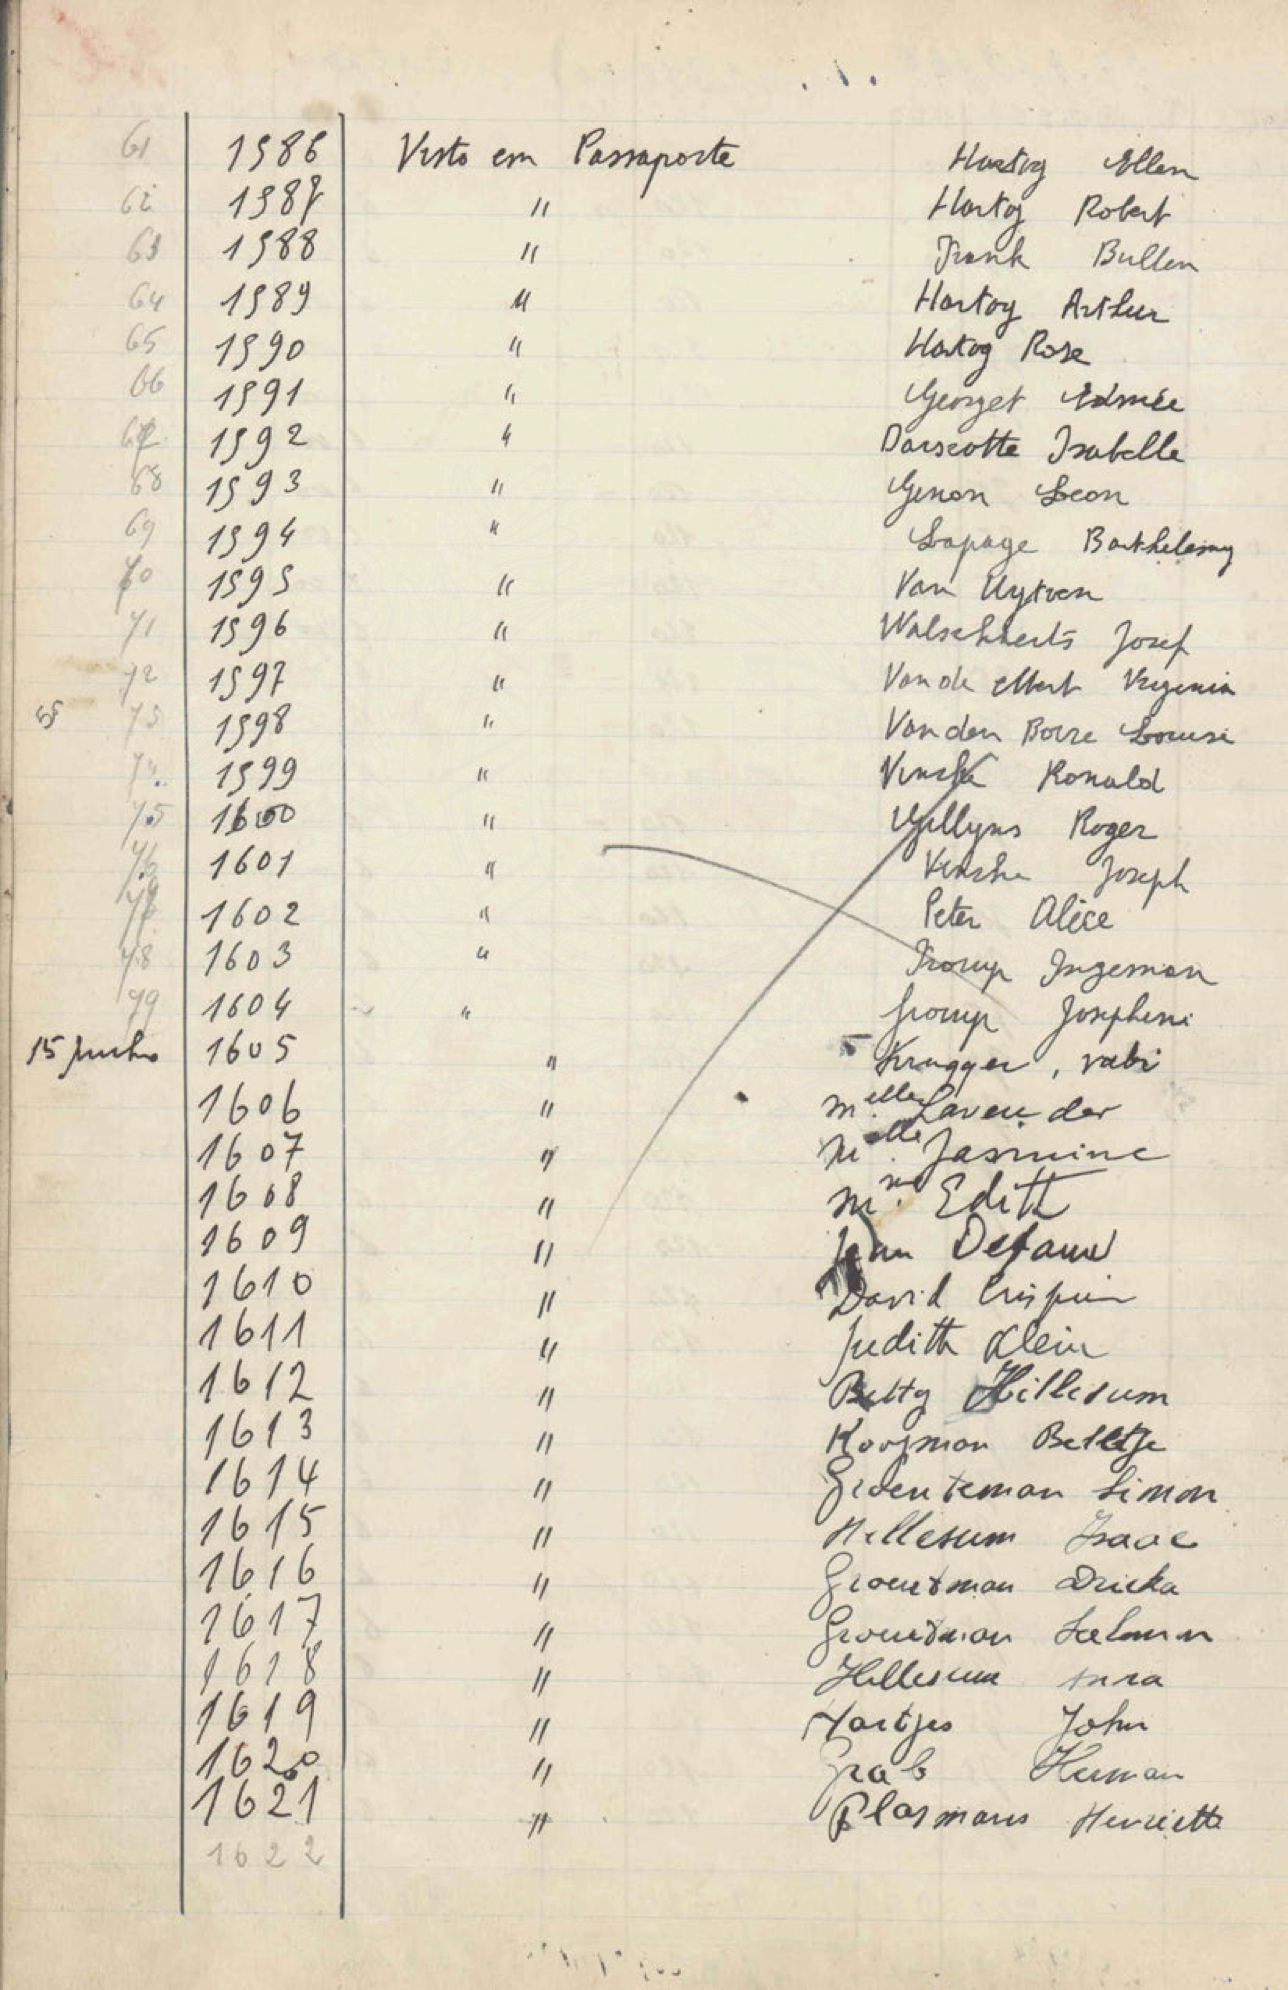 61 1586 Visto em Passaporte Hartog Ellen
62 1587 " Hartog Robert
63 1588 " Frank Bullen
64 1589 " Hartog Arthur
65 1590 " Hartog Rose
66 1591 " Georget Edmée
67 1592 " Darscotte Isabelle
68 1593 " Genon Leon
69 1594 " Lapage Barthelemy
70 1595 " Van Uytven
71 1596 " Walschaerts Josef
72 1597 " Van de Virginia
73 1598 " Van den Borre Louise
74 1599 " Ronald
75 1600 " Gillyns Roger
76 1601 " Joseph
77 1602 " Peter Alice
78 1603 " Ingeman
79 1604 " Josephine
15 Junho 1605 " Krugger, rabi
1606 " M.elle Lavender
1607 " M.elle Jasmine
1608 " M.me Edith
1609 " Jean Defauw
1610 " David Crispin
1611 " Judith Klein
1612 " Betty Hillesum
1613 " Koopman Beletje
1614 " Groenteman Simon
1615 " Hillesum Isaac
1616 " Groentman Dricka
1617 " Groentman
1618 " Hillesum
1619 " Hartjes John
1620 " Grab Herman
1621 " Plasmans Henriette
1622